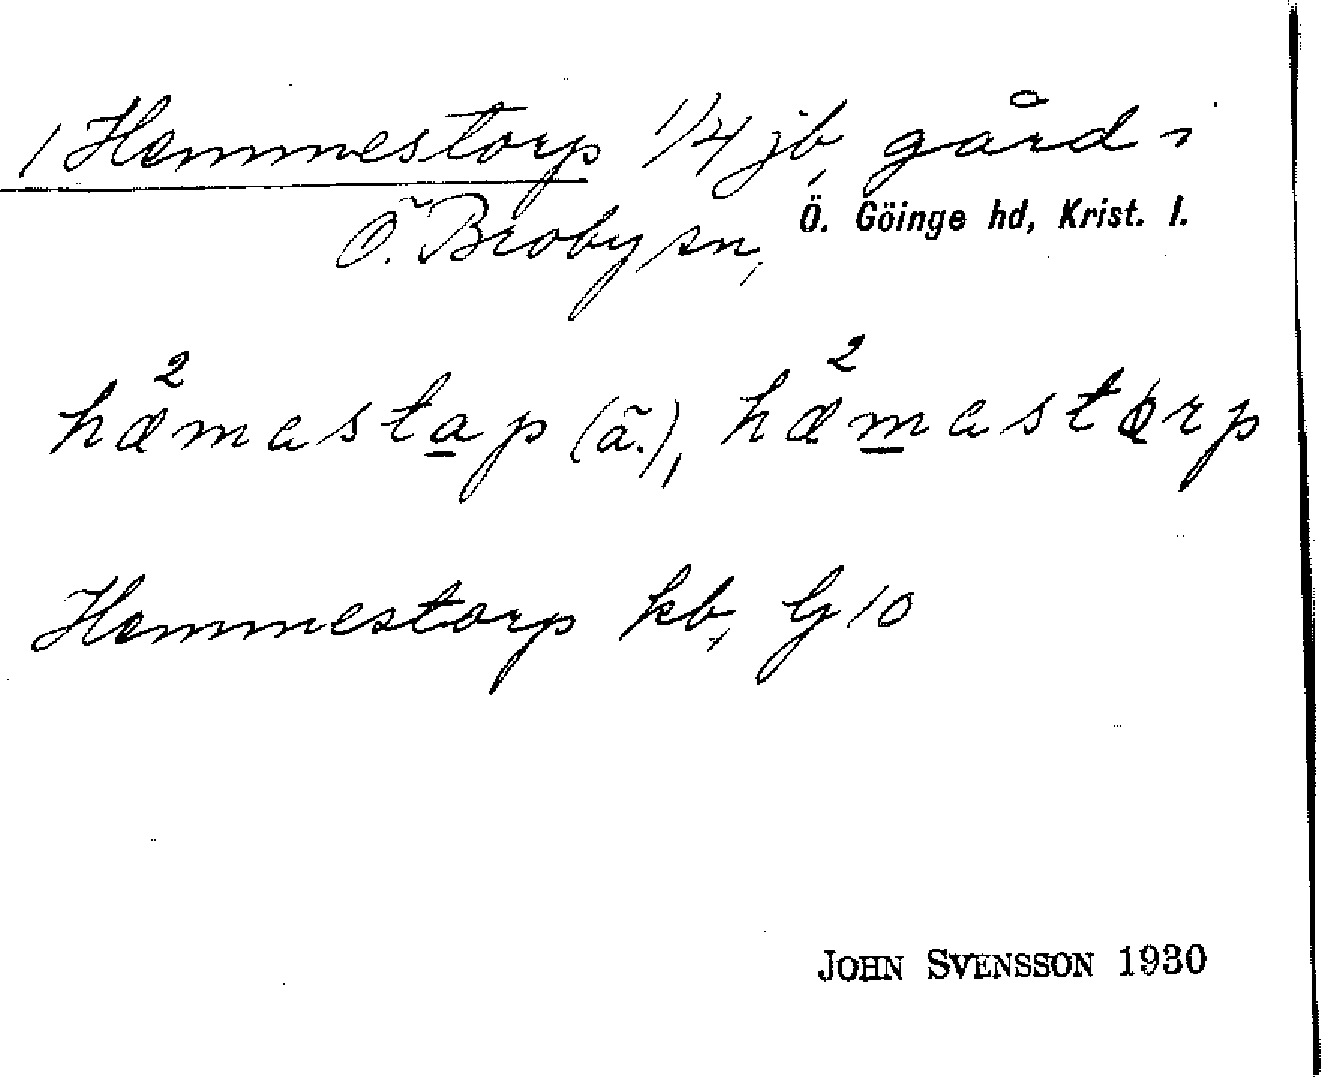 1 Hemmestorp 1/4 jb, gård i
Ö. Broby sn, Ö. Göinge hd, Krist. l.
hæ²mastap (ä.), hæ²mastorp
Hemmestorp kb, G 10
JOHN SVENSSON 1930